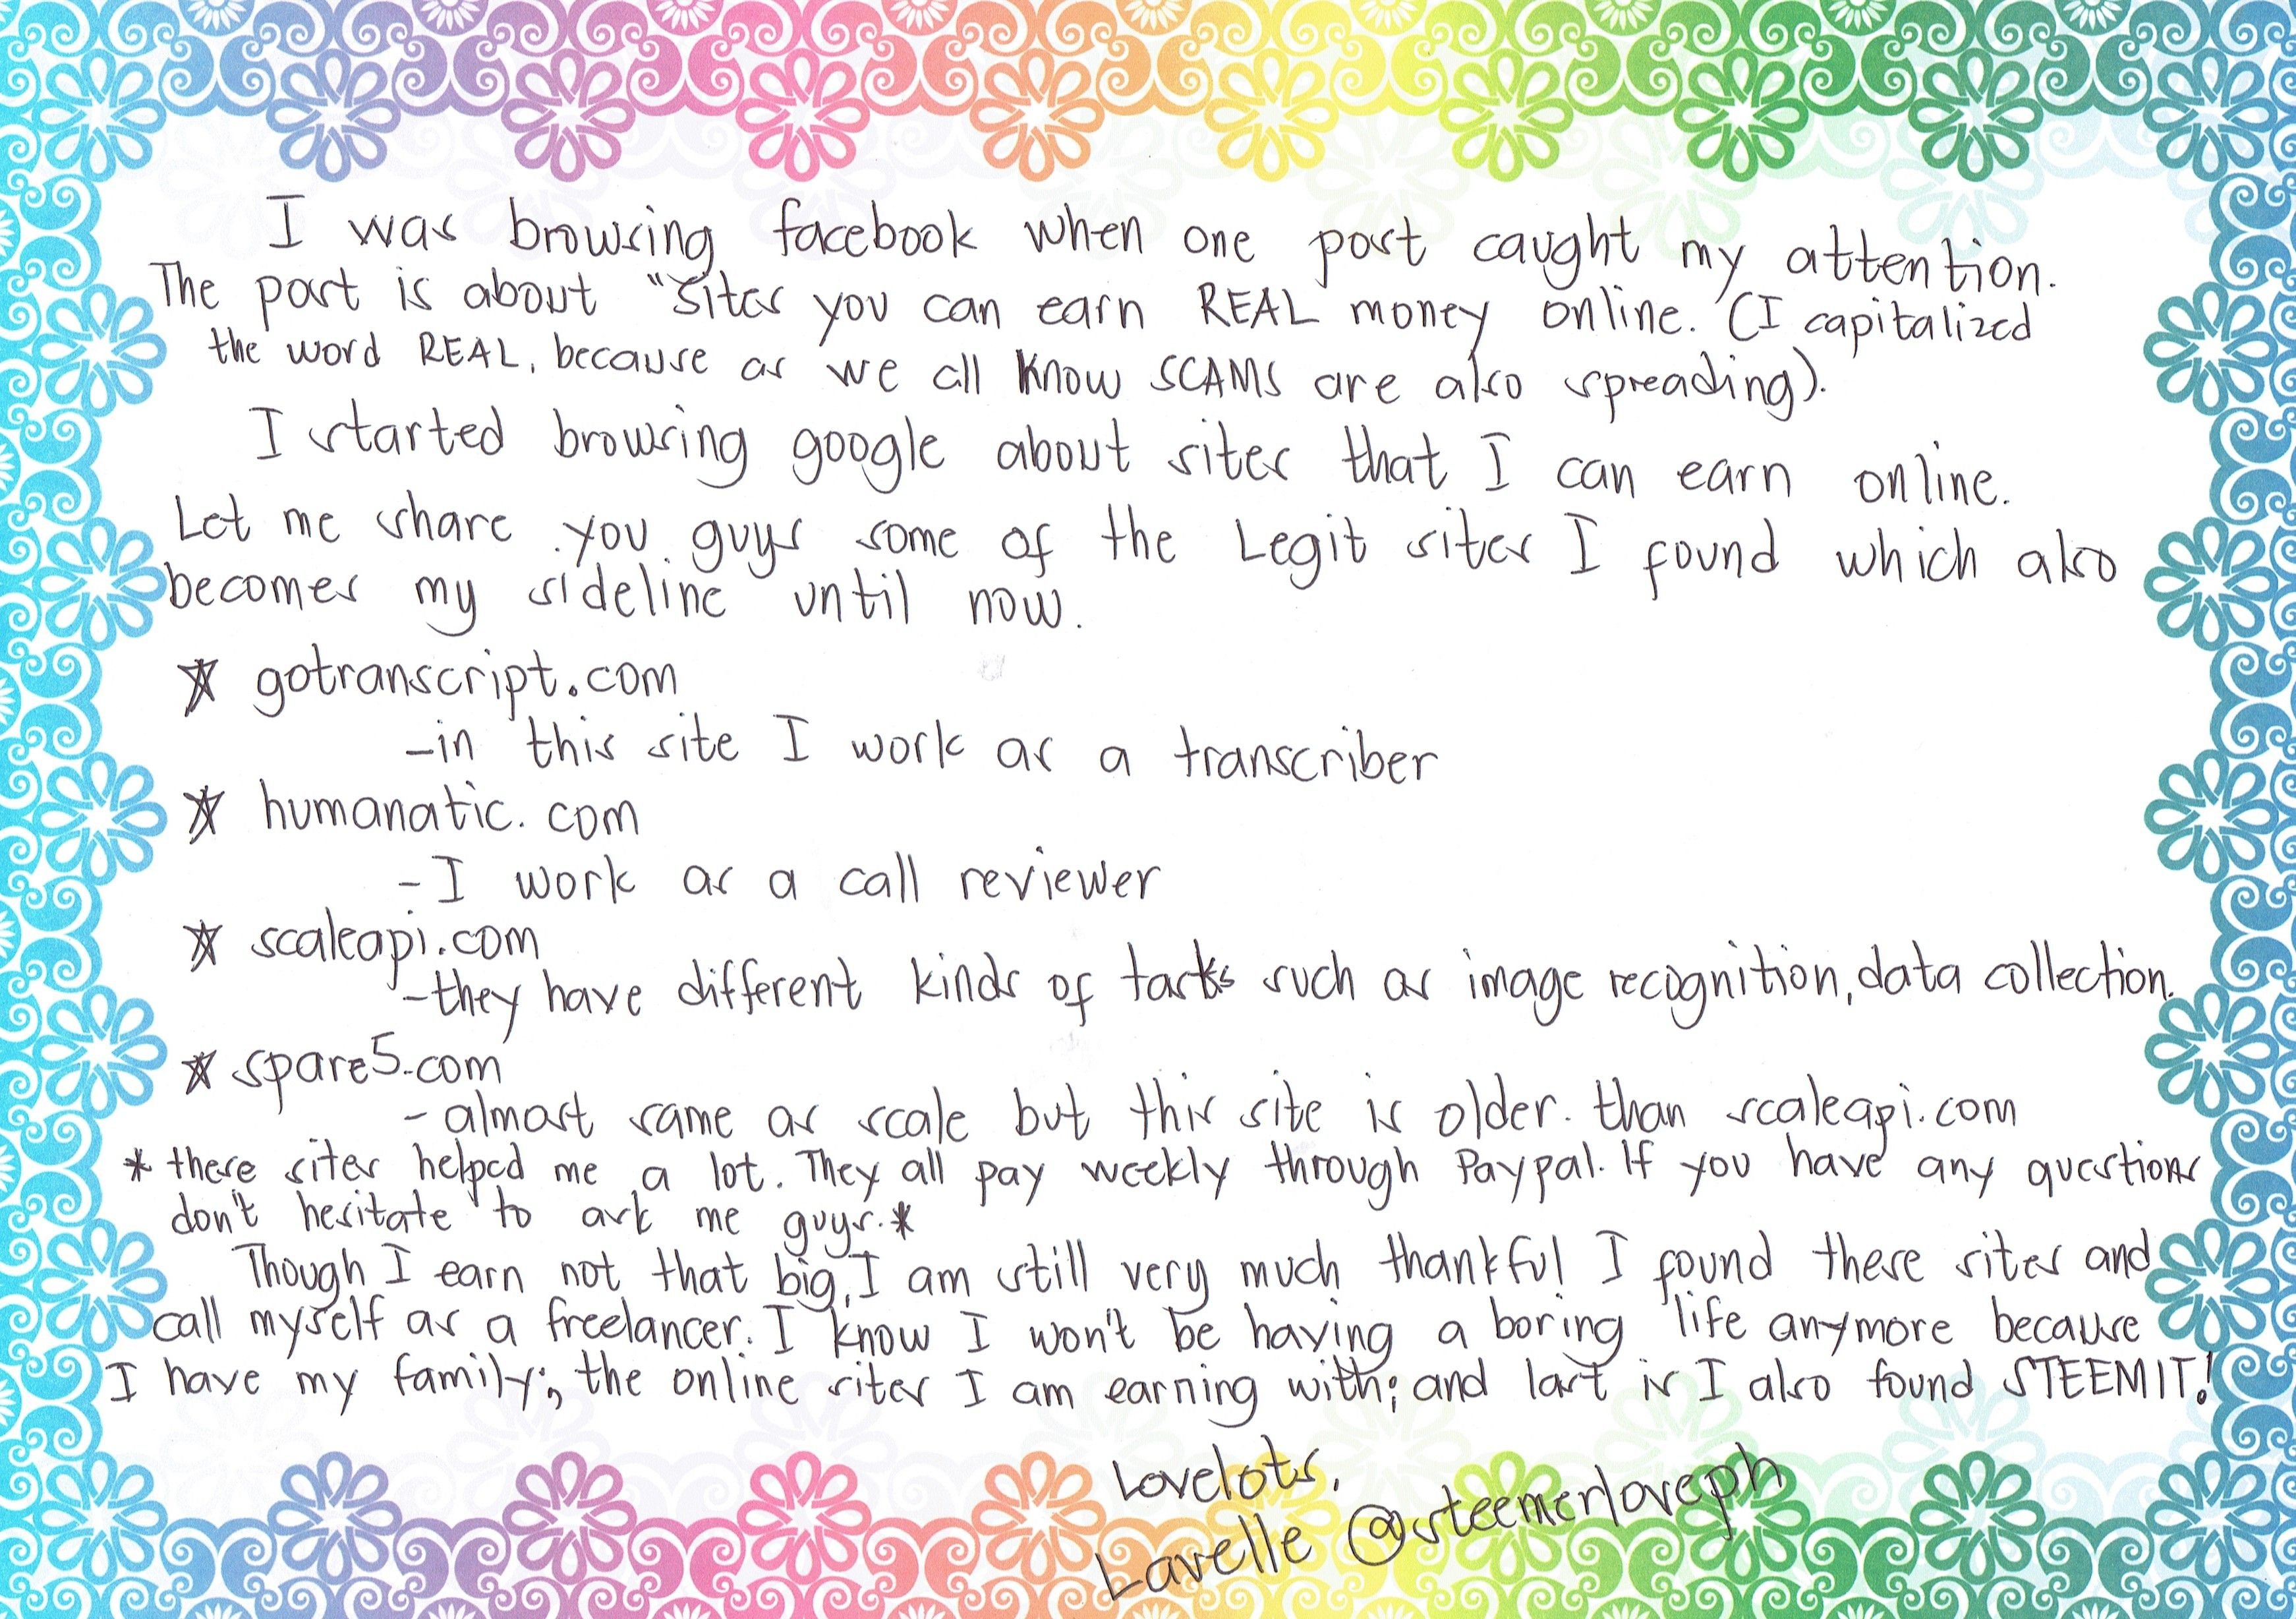 I was browsing facebook when one post caught my attention.
The post is about "Sites you can earn REAL money online. (I capitalized
the word REAL, because as we all know SCAMS are also spreading).
I started browsing google about sites that I can earn online.
Let me share you guys some of the Legit sites I found which also
becomes my sideline until now.
* gotranscript.com
-in this site I work as a transcriber
* humanatic.com
-I work as a call reviewer
* scaleapi.com
-they have different kinds of tasks such as image recognition, data collection.
* spare5.com
- almost same as scale but this site is older. than scaleapi.com
* these sites helped me a lot. They all pay weekly through Paypal. If you have any questions
don't hesitate to ask me guys.*
Though I earn not that big, I am still very much thankful I found these sites and
call myself as a freelancer. I know I won't be having a boring life anymore because
I have my family;, the online sites I am earning with; and last is I also found STEEMIT!
Lovelots,
Lavelle @steemerloveph